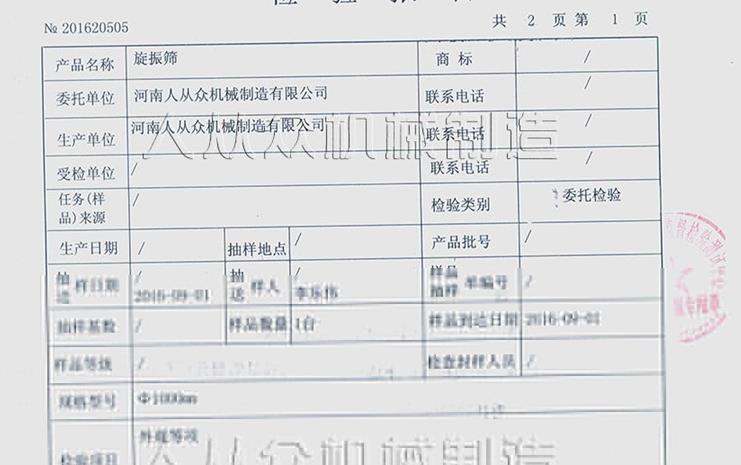 № 201620505 共 2 页 第 1 页
产品名称 旋振筛 商 标 /
委托单位 河南人从众机械制造有限公司 联系电话 /
生产单位 河南人从众机械制造有限公司 / 联系电话 /
人从众机械制造
受检单位 / 联系电话 /
任务(样
品)来源 / 检验类别 委托检验
生产日期 / 抽样地点 / 产品批号 /
抽
送 样日期 2016-09-01 抽
送 样人 样品
抽样 单编号 /
抽样基数 / 样品数量 1台 样品到达日期 2016-09-01
样品等级 / 检查封样人员 /
规格型号 Φ1000mm
检验项目 外观等项
人从众机械制造